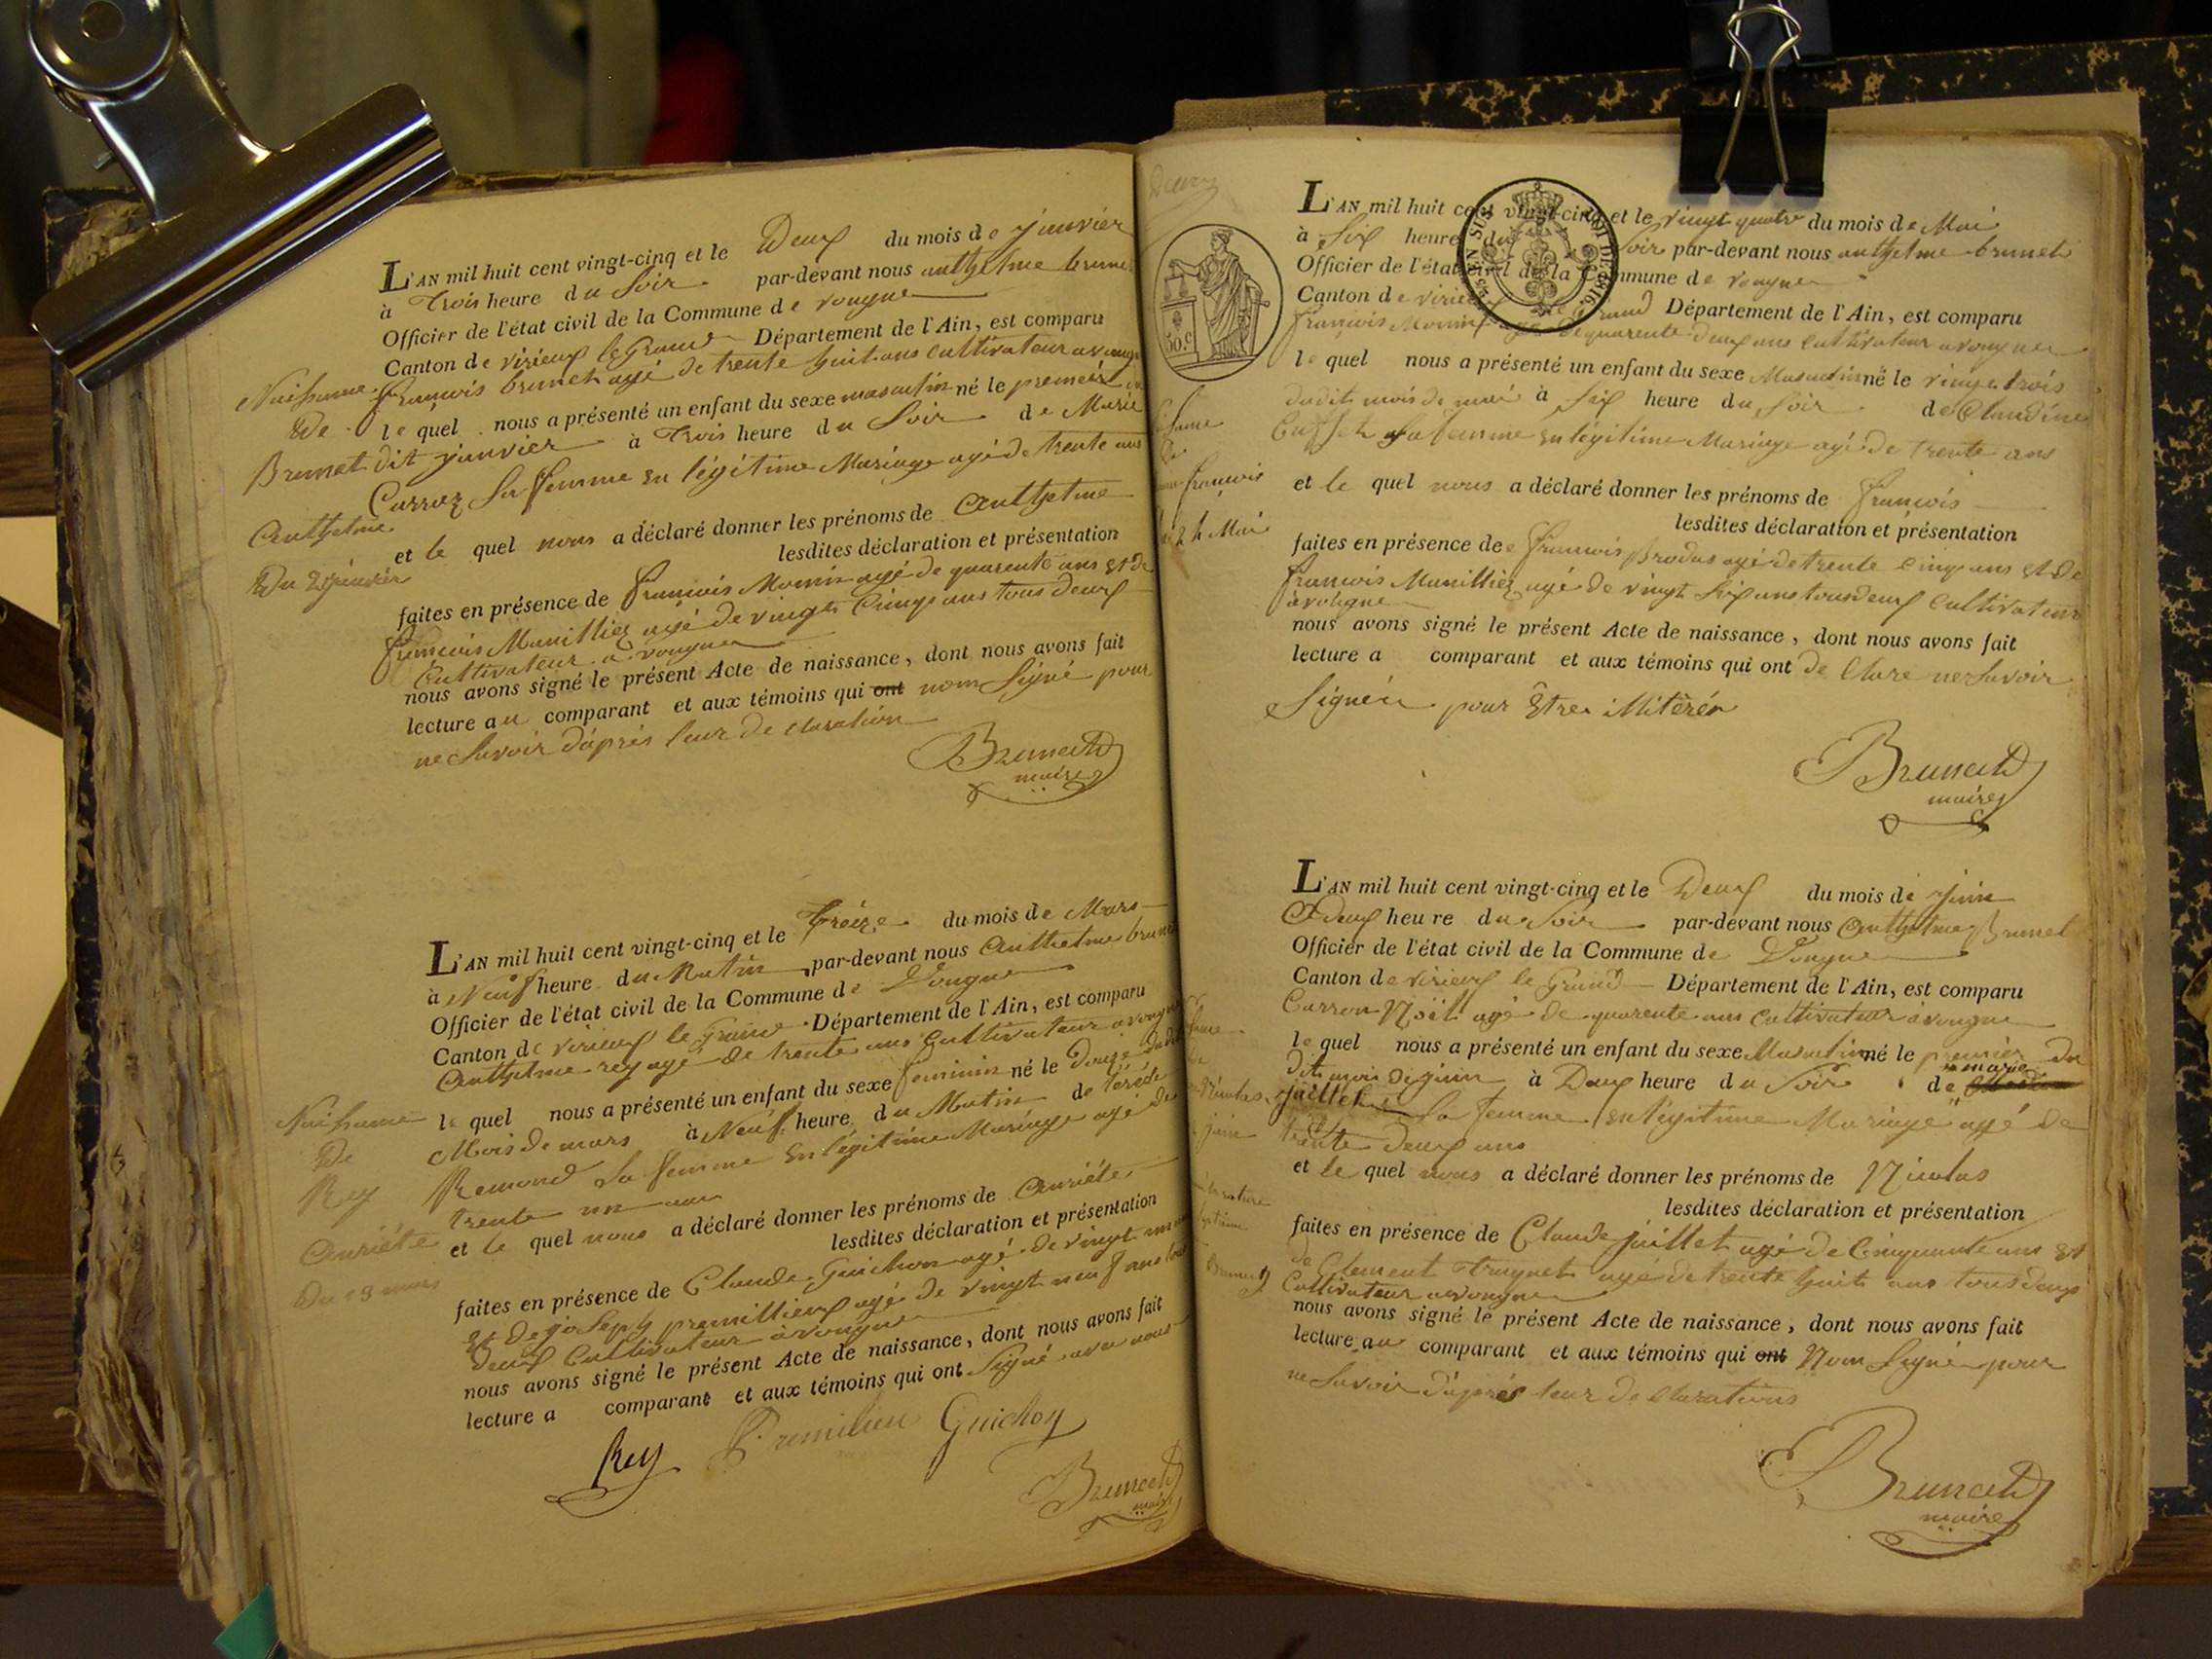 L'AN mil huit cent vingt-cinq et le Deux du mois de janvier
à Trois heure du Soir par-devant nous anthelme brunet
Officier de l'état civil de la Commune de vongne
Canton de virieux le Grand Département de l'Ain, est comparu
françois brunet agé de trente huit ans cultivateur a vongne
le quel nous a présenté un enfant du sexe masculin né le premier
dit janvier à Trois heure du Soir de Marie
Carrez Sa femme en légitime Mariage agé de trente ans
et le quel nous a déclaré donner les prénoms de Anthelme
lesdites déclaration et présentation
faites en présence de françois Monin agé de quarente ans et de
françois Manilliez agé de vingt Cinq ans tous deux
Cultivateur a vongne
nous avons signé le présent Acte de naissance, dont nous avons fait
lecture au comparant et aux témoins qui ont nom Signé pour
ne Savoir d'après leur de claration
Brunet
maire
Naissance
De
Brunet
Anthelme
Du 2 janvier
L'AN mil huit cent vingt-cinq et le Treize du mois de Mars
à Neuf heure du Matin par-devant nous Anthelme brunet
Officier de l'état civil de la Commune de Vongne
Canton de virieux le Grand Département de l'Ain, est comparu
Anthelme rey agé de trente ans Cultivateur a vongne
le quel nous a présenté un enfant du sexe feminin né le Douze dudit
Mois de mars à Neuf heure du Matin de Térése
Remond Sa femme En légitime Mariage agé de
trente un ans
et le quel nous a déclaré donner les prénoms de Anriéte
lesdites déclaration et présentation
faites en présence de Claude Guichon agé de vingt
Et de joseph premillieux agé de vingt neuf ans tous
deux Cultivateur a vongne
nous avons signé le présent Acte de naissance, dont nous avons fait
lecture a comparant et aux témoins qui ont Signé avec nous
Rey Premilieu Guichon
Brunet
maire
Naissance
De
Rey
Anriéte
Du 13 mars
L'AN mil huit cent vingt-cinq et le vingt quatre du mois de Mai
à Six heure du Soir par-devant nous anthelme brunet
Officier de l'état civil de la Commune de vongne
Canton de virieux le Grand Département de l'Ain, est comparu
François Monin agé de quarente deux ans cultivateur a vongne
le quel nous a présenté un enfant du sexe Masculin né le vingt trois
dudit mois de mai à Six heure du Soir de Claudine
Sa femme en légitime Mariage agé de trente ans
et le quel nous a déclaré donner les prénoms de François
lesdites déclaration et présentation
faites en présence de François Brodas agé de trente Cinq ans et de
françois Manilliez agé de vingt Six ans tous deux Cultivateur
a vongne
nous avons signé le présent Acte de naissance, dont nous avons fait
lecture a comparant et aux témoins qui ont de Clare ne Savoir
Signér pour Etre illitéré
Brunet
maire
50.c
françois
24 Mai
L'AN mil huit cent vingt-cinq et le Deux du mois de juin
a Deux heure du Soir par-devant nous Anthelme Brunet
Officier de l'état civil de la Commune de Vongne
Canton de virieux le Grand Département de l'Ain, est comparu
Carron Noël agé de quarente ans Cultivateur a vongne
le quel nous a présenté un enfant du sexe Masculin né le premier du
dit mois de juin à Deux heure du Soir de marie
juillet Sa femme En légitime Mariage agé de
trente deux ans
et le quel nous a déclaré donner les prénoms de Nicolas
lesdites déclaration et présentation
faites en présence de Claude juillet agé de Cinquante ans Et
de Clement agé de trente huit ans tous deux
Cultivateur a vongne
nous avons signé le présent Acte de naissance, dont nous avons fait
lecture au comparant et aux témoins qui ont Nom Signé pour
ne Savoir d'après leur de clarations
Brunet
maire
Nicolas
juin